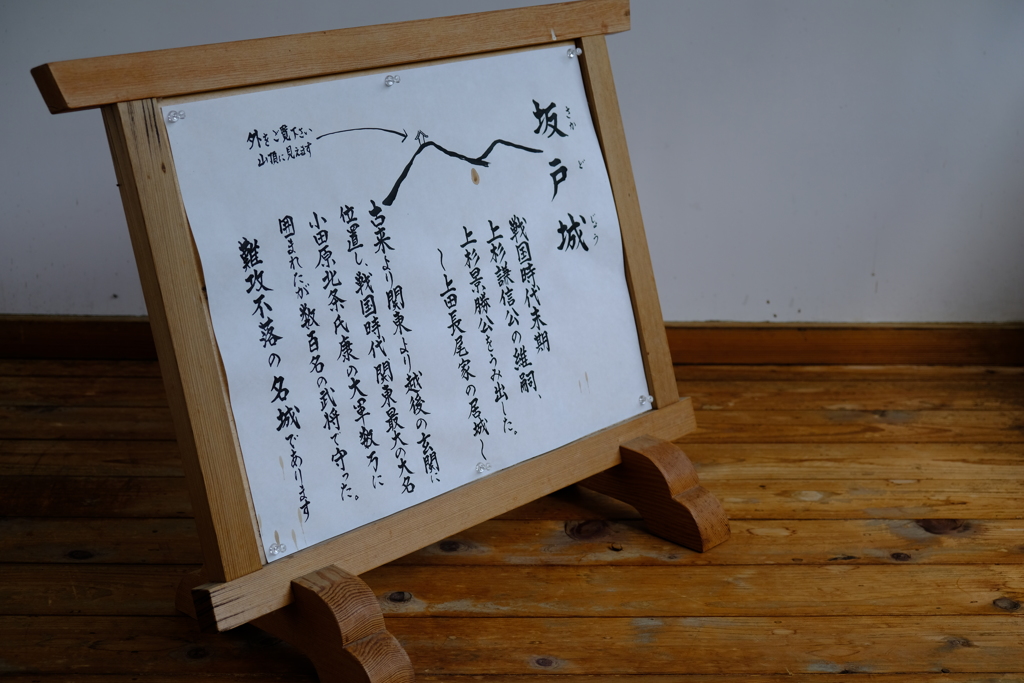 坂戸城
さかどじょう
戦国時代末期
上杉謙信公の継嗣、
上杉景勝公をうみ出した。
〜上田長尾家の居城〜
古来より関東より越後の玄関に
位置し、戦国時代関東最大の大名
小田原北条氏康の大軍数万に
囲まれたが数百名の武将で守った。
難攻不落の名城であります
外をご覧下さい
山頂に見えます